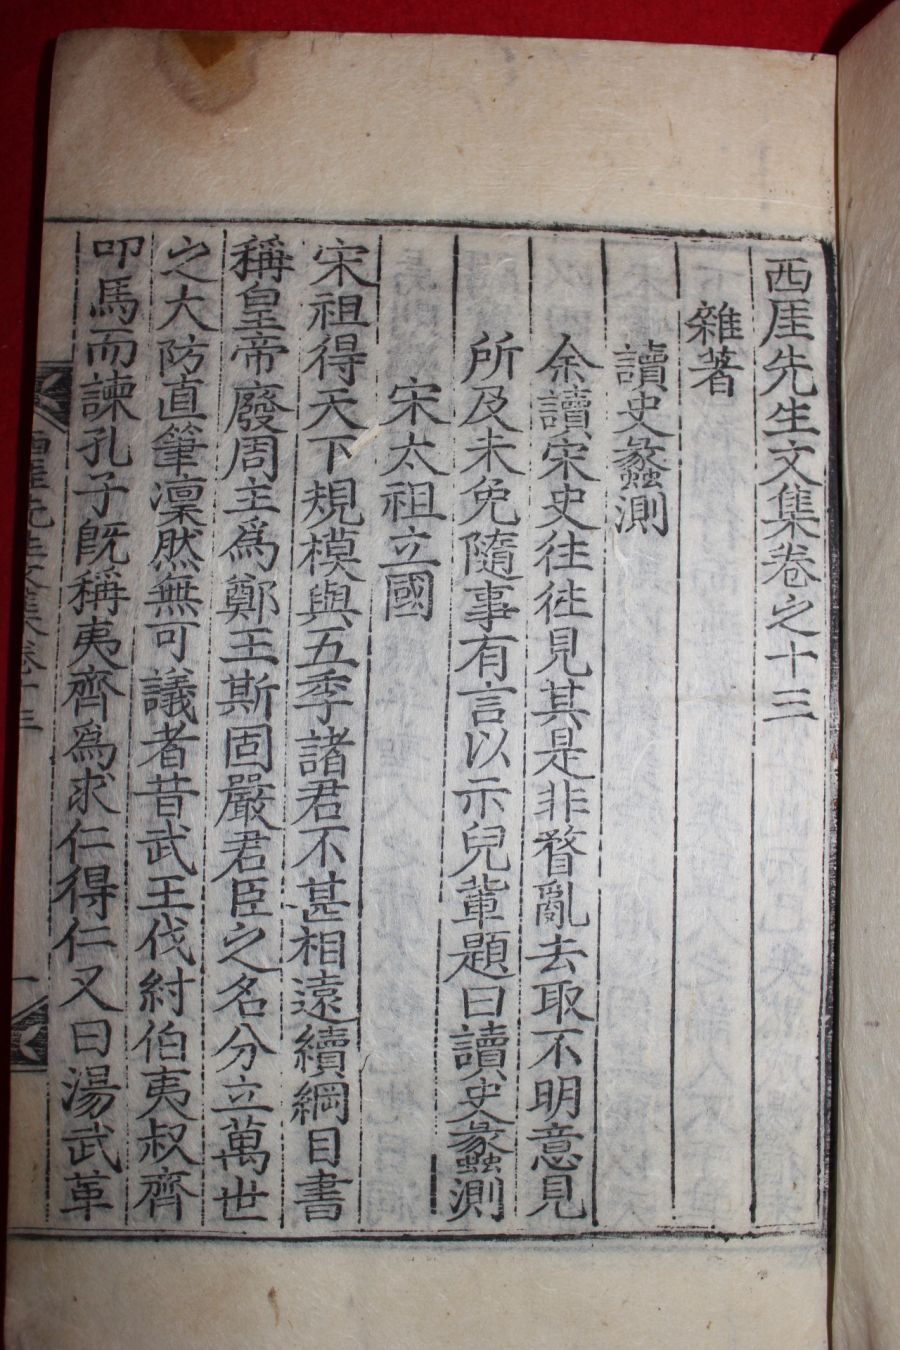 西厓先生文集卷之十三
雜著
讀史蠡測
余讀宋史往往見其是非瞀亂去取不明意見
所及未免隨事有言以示兒輩題曰讀史蠡測
宋太祖立國
宋祖得天下規模與五季諸君不甚相遠續綱目書
稱皇帝廢周主爲鄭王斯固嚴君臣之名分立萬世
之大防直筆凜然無可議者昔武王伐紂伯夷叔齊
叩馬而諫孔子旣稱夷齊爲求仁得仁又曰湯武革